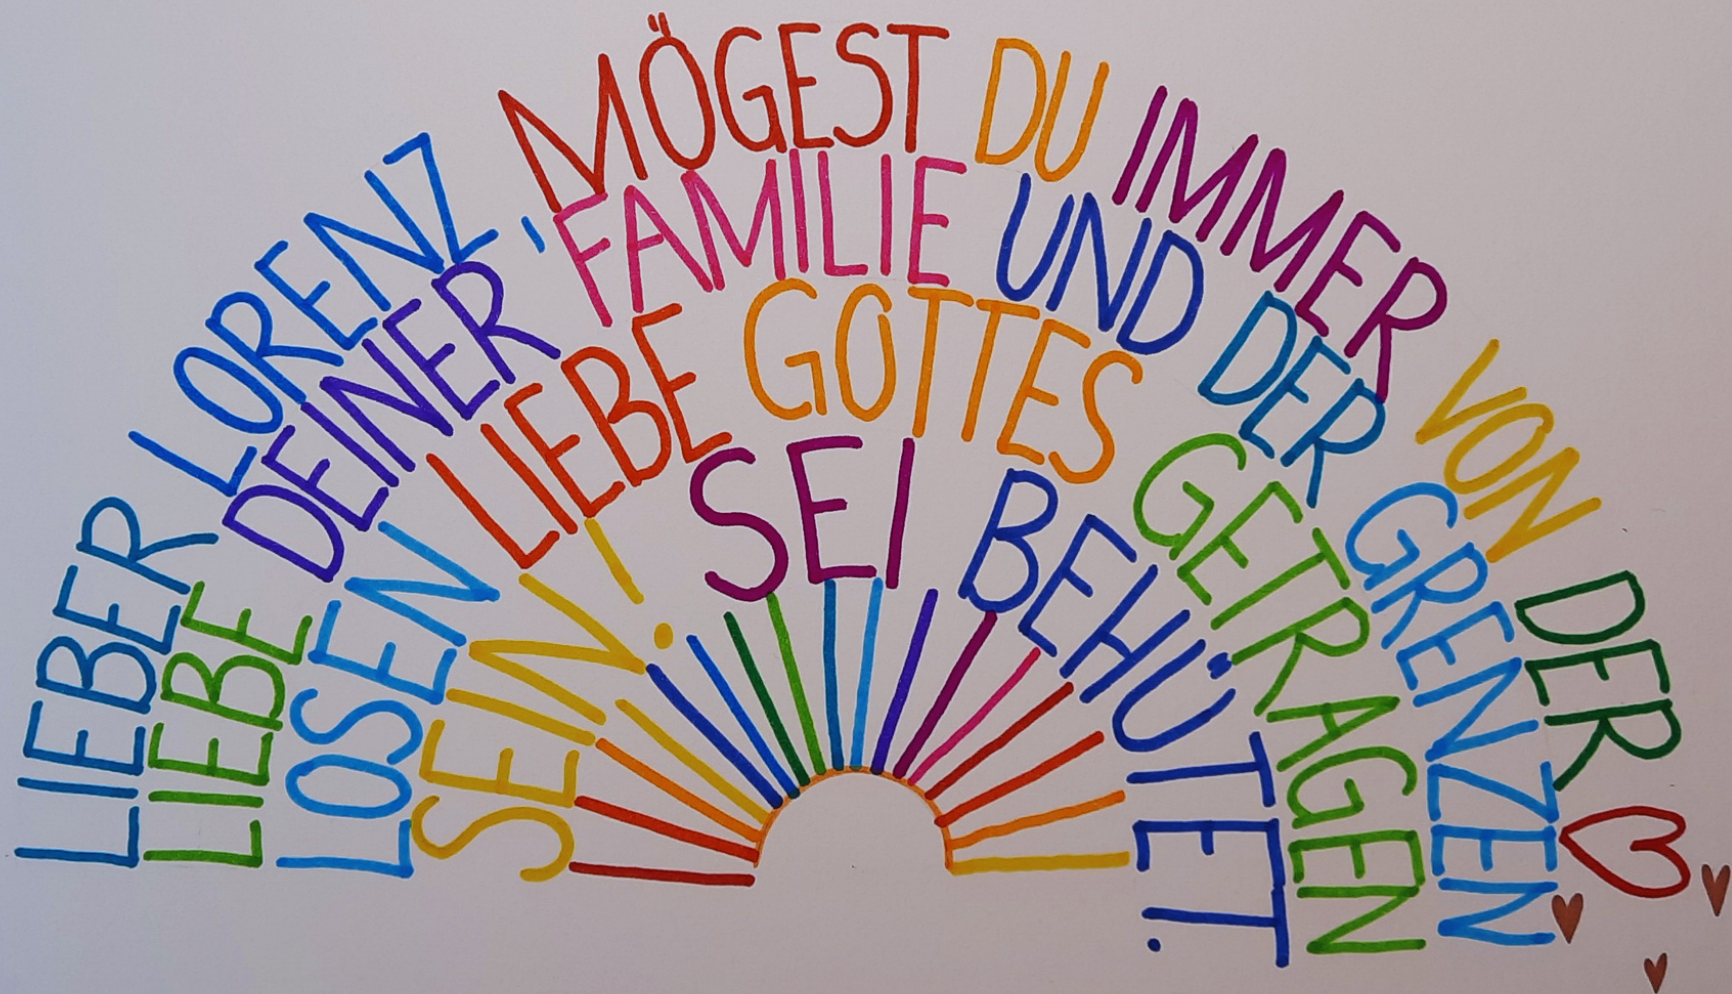 LIEBER LORENZ, MÖGEST DU IMMER VON DER
LIEBE DEINER FAMILIE UND DER GRENZEN
LOSEN LIEBE GOTTES GETRAGEN
SEIN! SEI BEHÜTET.